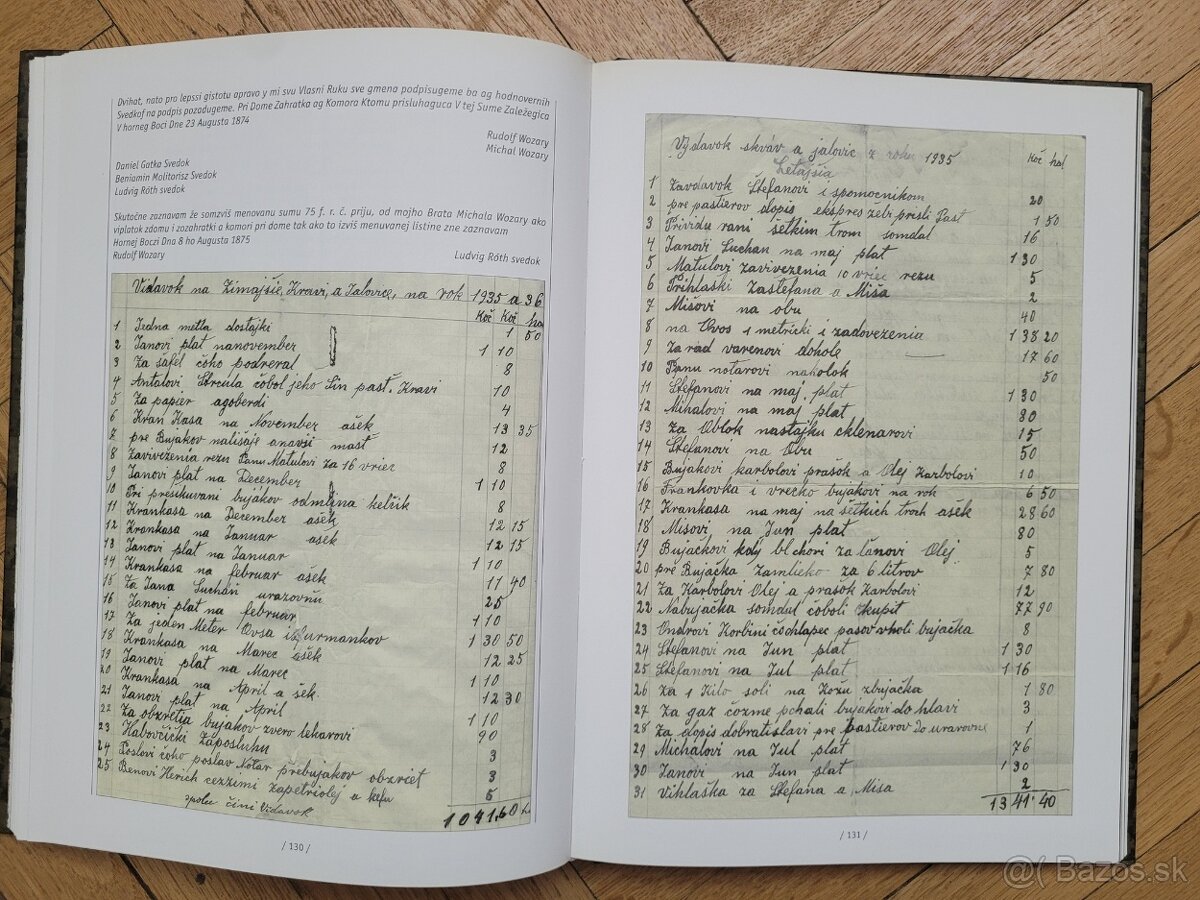 Dvihat, nato pro lepssi gistotu apravo y mi svu Vlasni Ruku sve gmena podpisugeme ba ag hodnovernih
Svedkof na podpis pozadugeme. Pri Dome Zahratka ag Komora Ktomu prisluhaguca V tej Sume Zaležegica
V horneg Boci Dne 23 Augusta 1874
Rudolf Wozary
Michal Wozary
Daniel Gatka Svedok
Beniamin Molitorisz Svedok
Ludvig Róth svedok
Skutočne zoznavam že somzviš menovanu sumu 75 f. r. č. priju, od mojho Brata Michala Wozary ako
viplatok zdomu i zozahratki a komori pri dome tak ako to izviš menuvanej listine zne zaznavam
Hornej Boczi Dna 8 ho Augusta 1875
Rudolf Wozary
Ludvig Róth svedok
Vidavok na Zimajšie, Kravi, a Jalovice, na rok 1935 a 36
Kčč Kčč ha
1 Jedna metla dostajki 1 50
2 Janovi plat nanovember 1 10
3 Za šafel čoho podreral 8
4 Antalovi Strcula čobol jeho Sin past. Kravi 10
5 Za papier agoberdi 4
6 Kran Kasa na November ašek 13 35
7 pre Bujakov nališaje anavši mast 12
8 Zavivezenia rezu Panu Matulovi za 16 vriec 8
9 Janovi plat na December 1 10
10 Pri presikuvani bujakov odmlina kelčik 8
11 Krankasa na December ašek 12 15
12 Krankasa na Januar ašek 12 15
13 Janovi plat na Januar 1 10
14 Krankasa na februar ašek 11 40
15 Za Jana Suchán urazovnu 25
16 Janovi plat na februar 1 10
17 Za jeden Meter Ovsa izfurmankov 1 30 50
18 Krankasa na Marec ašek 12 25
19 Janovi plat na Marec 1 10
20 Krankasa na April a šek 12 30
21 Janovi plat na April 1 10
22 Za obzretia bujakov zvero lekarovi 90
23 Habovčicki zaposluhu 3
24 Poslovi čoho poslav Notar prebujakov obzrieť 3
25 Benovi Herich cezzimi zapetriolej a kefu 5
spolu čini Vidavok 1041.60 h.
/ 130 /
Vydavok skráv a jalovic z roku 1935
Letajšia Kčč hal
1 Zavdavok Štefanovi i spomocnikom 20
2 pre pastierov dopis ekspres žebi prišli Past 1 50
3 Prividu rani šetkim trom somdal 16
4 Janovi Suchan na maj plat 1 30
5 Matulovi zavivezenia 10 vriec rezu 5
6 Prihlaški Zaštefana a Miša 2
7 Mišovi na obu 40
8 na Ovos 1 metricki i zadovezenia 1 38 20
9 Za rad varenovi dohole 17 60
10 Panu notarovi naholok 50
11 Štefanovi na maj plat 1 30
12 Mihalovi na maj plat 80
13 za Oblok nastajku cklenarovi 15
14 Štefanovi na Obu 50
15 Bujakovi karbolovi prašok a Olej Karbolovi 10
16 Frankovka i vrecko bujakovi na rok 6 50
17 Krankasa na maj na šetkich troch ašek 28 60
18 Mišovi na Jun plat 80
19 Bujačkovi kdy bl chori za lanovi Olej 5
20 pre Bujačka Zamlieko za 6 litrov 7 80
21 za Karbolovi Olej a prašok Karbolovi 12
22 Nabujačka somdul čoboli kupit 77 90
23 Ondrovi Korbini čochlapec pasov vholi bujačka 8
24 Štefanovi na Jun plat 1 30
25 Štefanovi na Jul plat 1 16
26 za 1 Kilo soli na Kožu zbujačka 1 80
27 Za gaz čozme pchali bujakovi do hlavi 3
28 Za dopis dobratislavi pre pastierov do urarovne 1
29 Michalovi na Jul plat 76
30 Janovi na Jun plat 1 30
31 Vihlaška za Štefana a Miša 2
13 41.40
/ 131 /
@( Bazos.sk